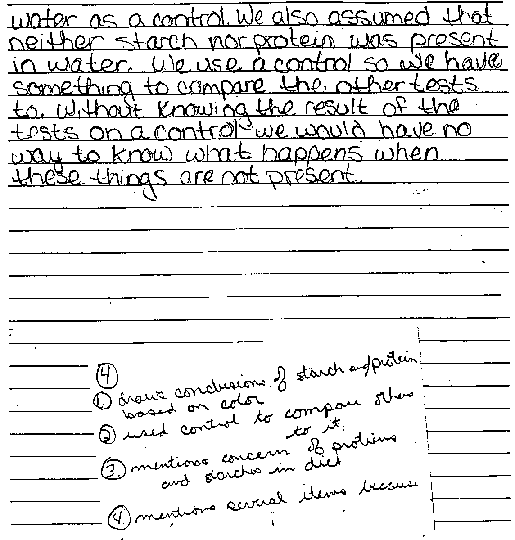 water as a control. We also assumed that
neither starch nor protein was present
in water. We use a control so we have
something to compare the other tests
to. Without knowing the result of the
tests on a control we would have no
way to know what happens when
these things are not present.
4
1 draws conclusions of starch and/protein
based on color
2 used control to compare others
to it
3 mentions concern of proteins
and starches in diet
4 mentions several items because